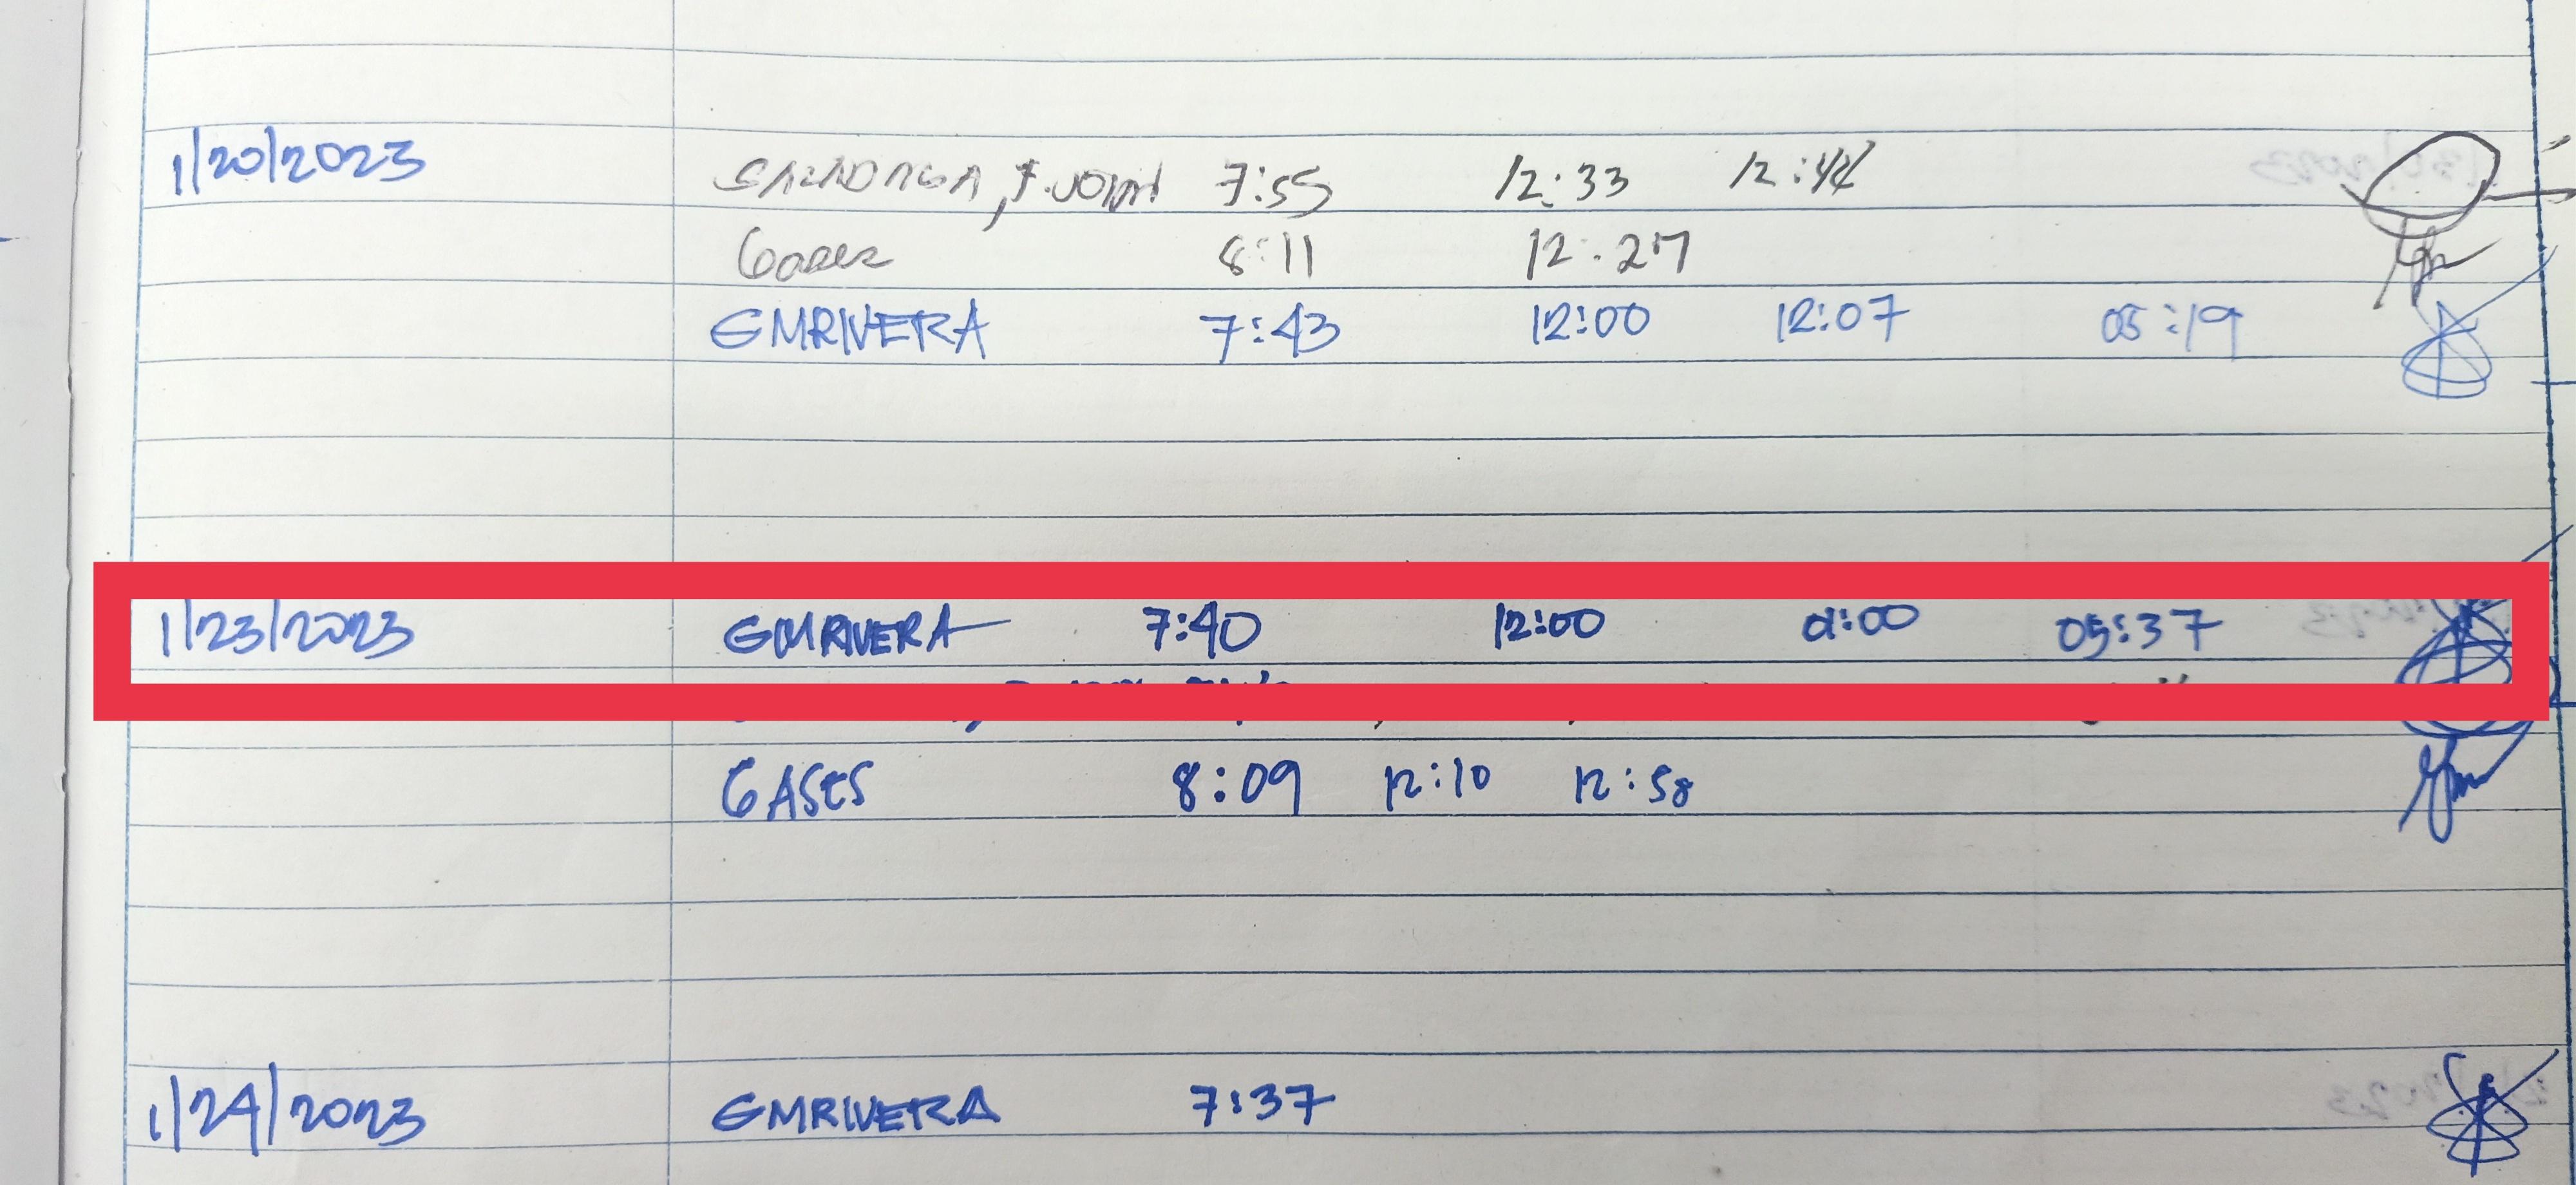 1/20/2023 SALADAGA, F. JOHN 7:55 12:33 12:44
Gases 8:11 12:27
GMRIVERA 7:43 12:00 12:07 05:19
1/23/2023 GMRIVERA 7:40 12:00 01:00 05:37
GASES 8:09 12:10 12:58
1/24/2023 GMRIVERA 7:37